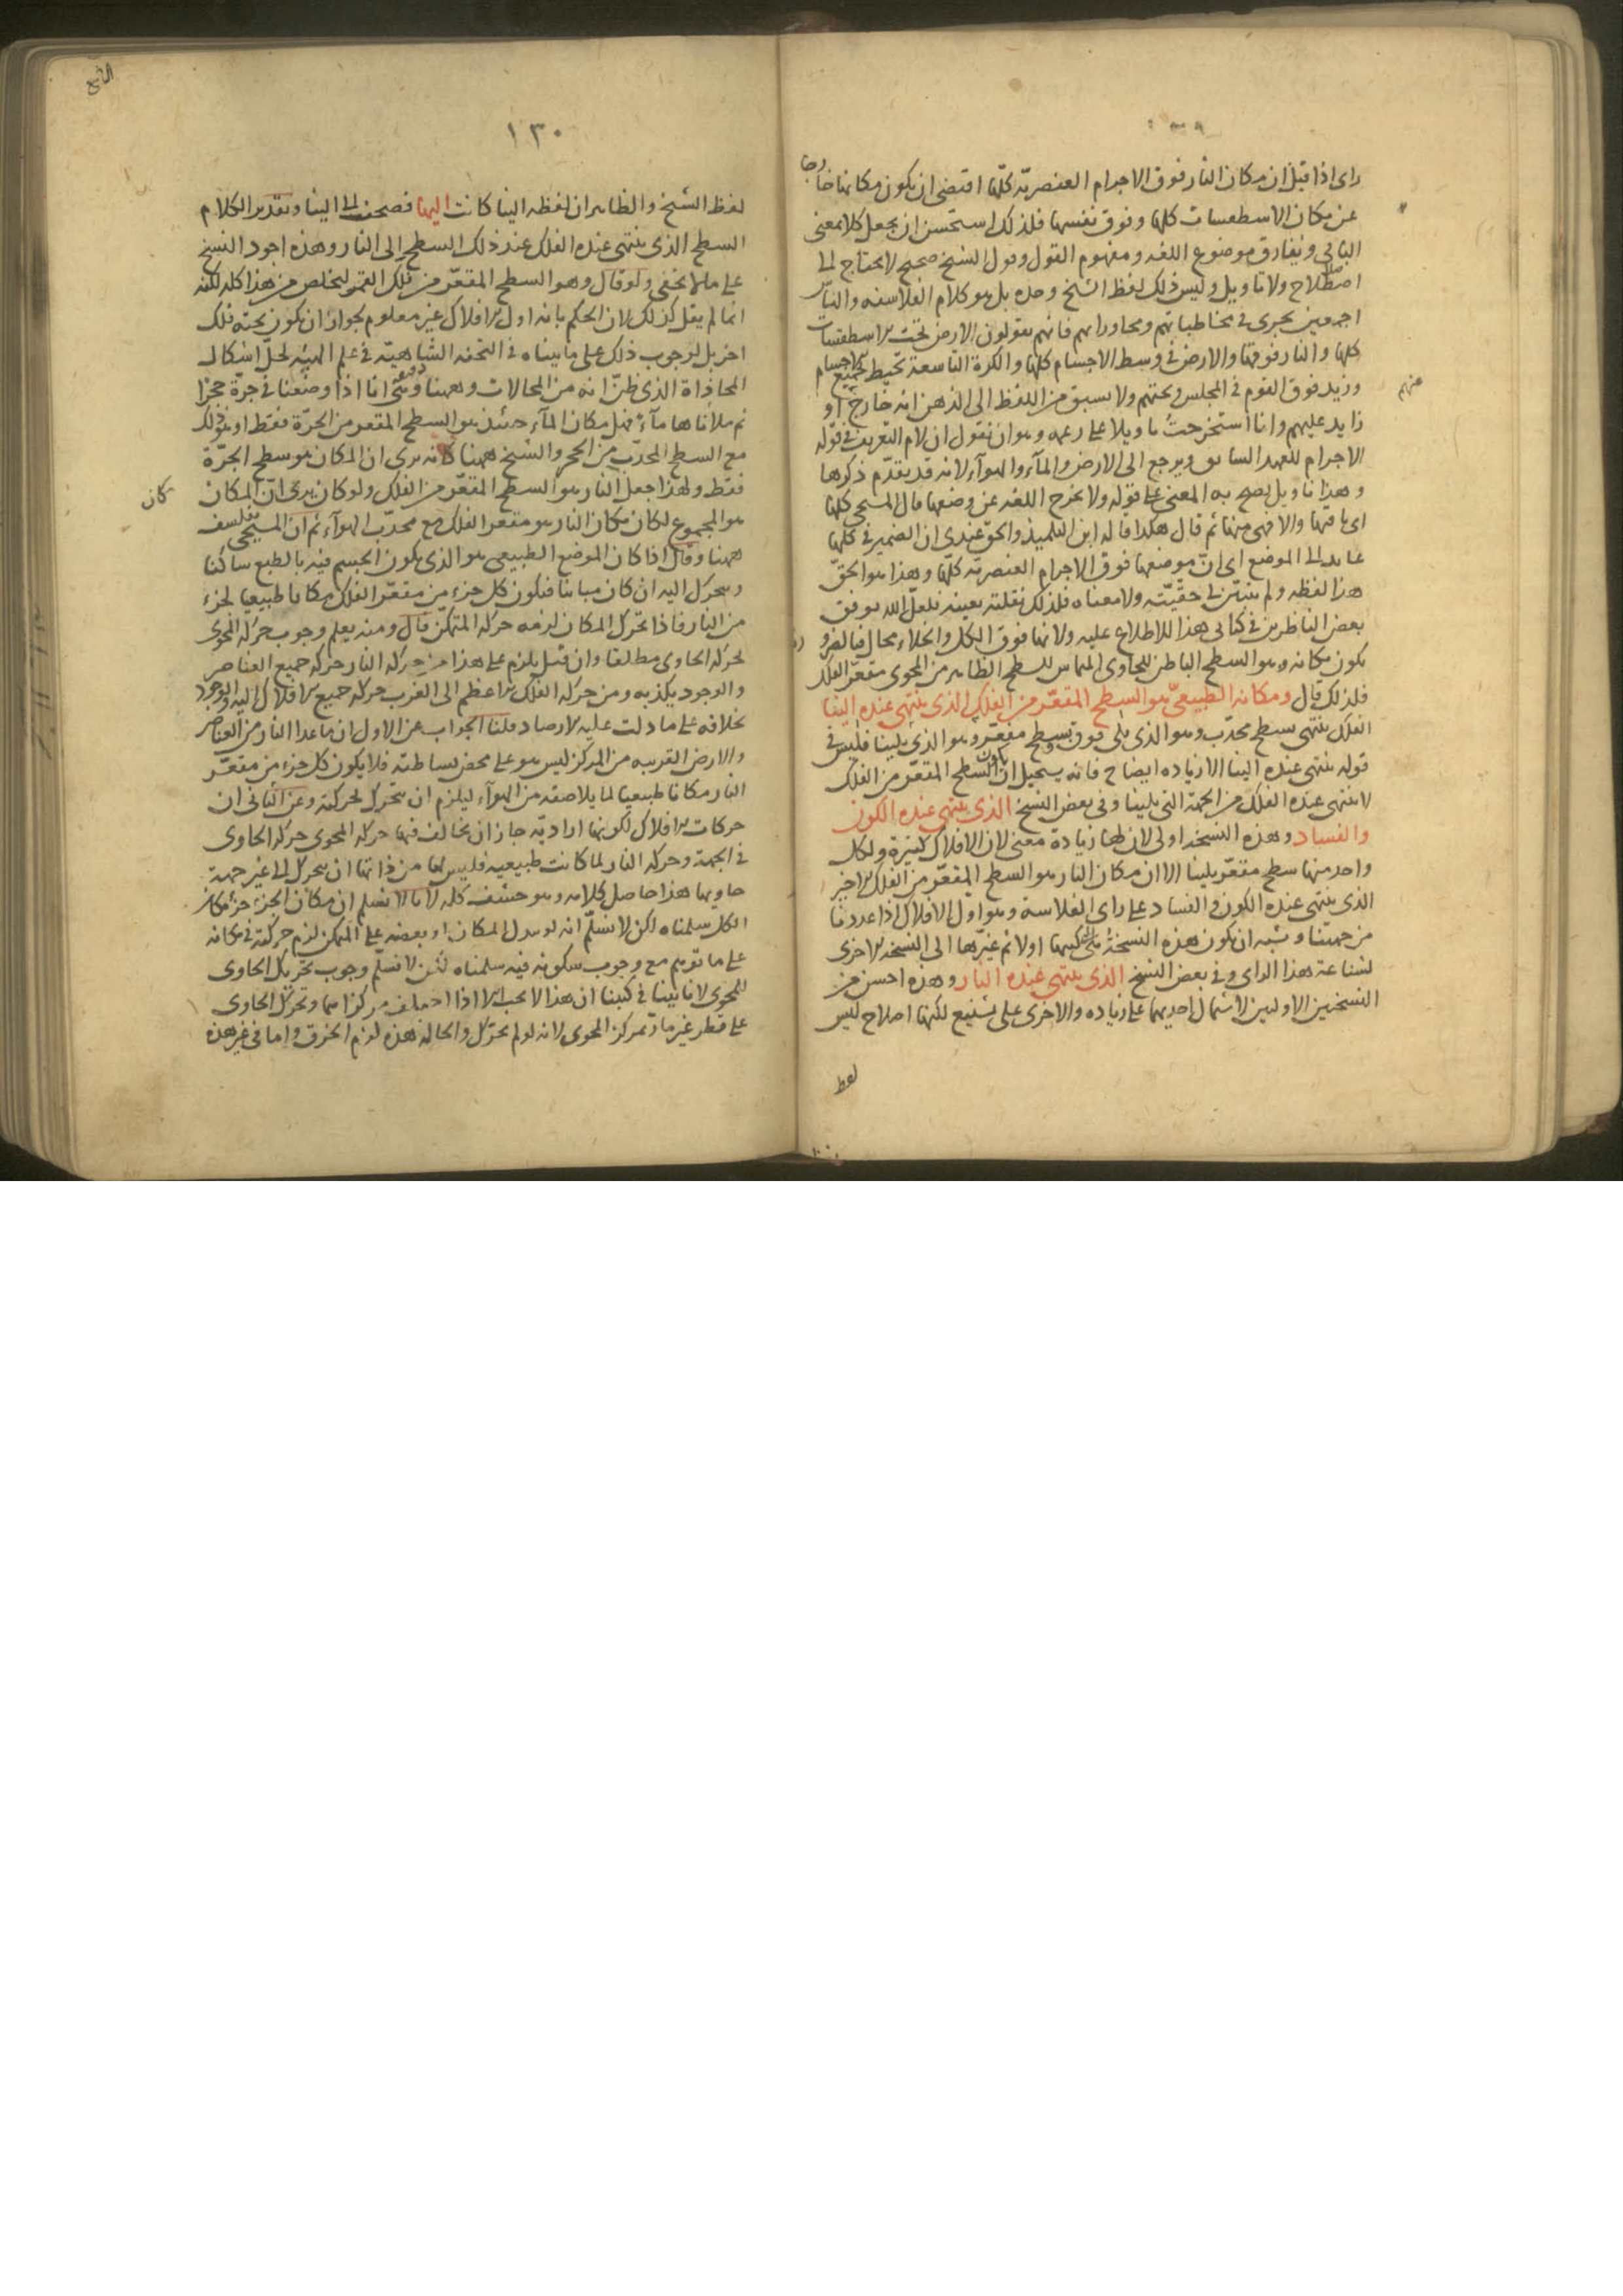 راى اذا قيل ان مكان النار فوق الاجرام العنصرية كلّها اقتضى ان يكون مكانها خارجا
عن مكان الاسطقسات كلها وفوق نفسها فلذلك استحسن ان يجعل كلا بمعنى
الباقى ويفارق موضوع اللغه ومفهوم القول وقول الشيخ صحيح لا يحتاج الى
اصطلاح ولا تاويل وليس ذلك لفظ الشيخ وحده بل هو كلام الفلاسفه والناس
اجمعين يجرى فى مخاطباتهم ومحاوراتهم فانهم يقولون الارض تحت الاسطقسات
كلها والنار فوقها والارض فى وسط الاجسام كلها والكرة التاسعة تحيط بجميع الاجسام
وزيد فوق القوم فى المجلس وتحتهم ولا يسبق من اللفظ الى الذهن انه خارج او
منهم
زايد عليهم وانا استخرجت تاويلا على زعمه وهو ان نقول ان لام التعريف فى قوله
الاجرام للعهد السابق ويرجع الى الارض والمآء والهوآء لانه قد تقدّم ذكرها
وهذا تاويل يصح به المعنى على قوله ولا يخرج اللغه عن وضعها قال المسيحى كلها
اى باقيها والا فهى منها ثم قال هكذا قاله ابن التلميذ والحق عندى ان الضمير فى كلها
عايد الى الموضع اى انّ موضعها فوق الاجرام العنصرية كلّها وهذا هو الحقّ
هذا لفظه ولم يتبيّن لى حقّيّته ولا معناه فلذلك نقلته بعينه فلعلّ الله يوفق
بعض الناظرين فى كتابى هذا للاطلاع عليه ولانها فوق الكل والخلاء محال فبالضرو
يكون مكانه وهو السطح الباطن للحاوى المماس للسطح الظاهر من المحوى مقعّر الفلك
فلذلك قال ومكانه الطبيعىّ هو السطح المقعّر من الفلك الذى ينتهى عنده الينا
الفلك ينتهى بسطح محدّب وهو الذى يلى فوق وبسطح مقعّر وهو الذى يلينا فليس فى
قوله ينتهى عنده الينا الا زياده ايضاح فانه يستحيل ان يكون السطح المقعّر من الفلك
لا ينتهى عنده الفلك من الجهة التى يلينا وفى بعض النسخ الذى ينتهى عنده الكون
والفساد وهذه النسخه اولى لان لها زيادة معنى لان الافلاك كثيرة ولكل
واحد منها سطح مقعّر يلينا الا ان مكان النار هو السطح المقعّر من الفلك الاخير
الذى ينتهى عنده الكون والفساد على راى الفلاسفة وهو اول الافلاك اذا عددنا
من جهتنا ويشبه ان يكون هذه النسخة هى التى كتبها اولا ثم غيّرها الى النسخه الاخرى
لشناعة هذا الراى وفى بعض النسخ الذى ينتهى عنده النار وهذه احسن من
النسختين الاوليين لاشتمال احديهما على زياده والاخرى على تشنيع لكنها اصلاح ليس
لفظ
١٣٠
لفظ الشيخ والظاهر ان لفظه الينا كانت اليها فصحفت الى الينا وتقدير الكلام
السطح الذى ينتهى عنده الفلك عند ذلك السطح الى النار وهذه اجود النسخ
على ما لا يخفى ولو قال وهو السطح المقعّر من فلك القمر لتخلص من هذا كله لكنه
انما لم يقل كذلك لان الحكم بانه اول الافلاك غير معلوم لجواز ان يكون تحته فلك
اخر بل لوجوب ذلك على ما بيناه فى التحفه الشاهيّة فى علم الهيئه لحلّ اشكال
المحاذاة الذى ظنّ انه من المحالات وههنا دقيقة وهى انا اذا وضعنا فى جرّة حجرا
ثم ملأناها مآء فهل مكان المآء حينئذ هو السطح المقعر من الجرّة فقط او هو ذلك
مع السطح المحدّب من الحجر والشيخ ههنا كانه يرى ان المكان هو سطح الجرّة
فقط ولهذا جعل النار هو السطح المقعّر من الفلك ولو كان يرى انّ المكان
كان
هو المجموع لكان مكان النار هو مقعر الفلك مع محدّب الهوآء ثم ان المسيحى تفلسف
ههنا وقال اذا كان الموضع الطبيعى هو الذى يكون الجسم فيه بالطبع ساكنا
ويتحرك اليه ان كان مباينا فيكون كل جزء من مقعّر الفلك مكانا طبيعيا لجزء
من النار فاذا تحرك المكان لزمه حركة المتمكّن قال ومنه يعلم وجوب حركة المحوى
لحركة الحاوى مطلقا وان قيل يلزم على هذا من حركة النار حركة جميع العناصر
والوجود يكذبه ومن حركة الفلك الاعظم الى الغرب حركة جميع الافلاك اليه والوجود
بخلافه على ما دلت عليه الارصاد قلنا الجواب عن الاول ان ما عدا النار من العناصر
والارض القريبه من المركز ليس هو على محض بساطته فلا يكون كل جزء من مقعّر
النار مكانا طبيعيا لما يلاصقه من الهوآء ليلزم ان يتحرك لحركته وعن الثانى ان
حركات الافلاك لكونها اراديّة جاز ان يخالف فيها حركة المحوى حركة الحاوى
فى الجهة وحركة النار لما كانت طبيعيه فليس لها من ذاتها ان يتحرك الى غير جهة
حاويها هذا حاصل كلامه وهو حشف كله لانا لا نسلم ان مكان الجزء جزء مكان
الكل سلمناه لكن لا نسلّم انه لو تبدل المكان او بعضه على المتمكن لزم حركته فى مكانه
على ما توهم مع وجوب سكونه فيه سلمناه لكن لا نسلّم وجوب تحريك الحاوى
للمحوى لانا بينا فى كتبنا ان هذا لا يجب الا اذا اختلف مركزاهما وتحرّك الحاوى
على قطر غير مارّ بمركز المحوى لانه لو لم يتحرّك والحالة هذه لزم الخرق واما فى غير هذه